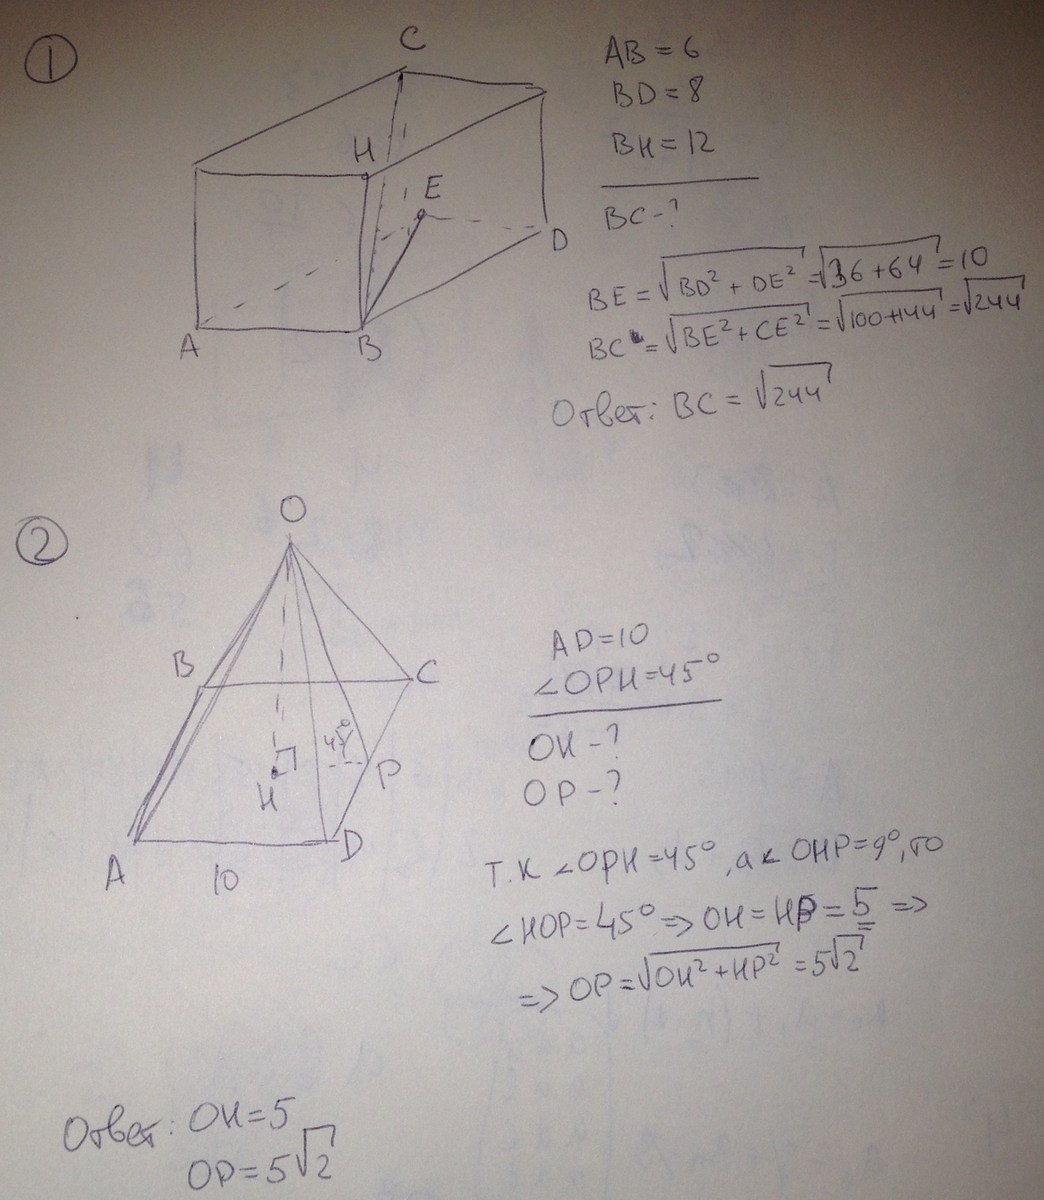 1
C
H
E
D
A
B
AB = 6
BD = 8
BH = 12
BC - ?
BE = √BD² + DE² = √36 + 64 = 10
BC = √BE² + CE² = √100 + 144 = √244
Ответ: BC = √244
2
O
B
C
45°
H
P
A
D
10
AD = 10
∠OPH = 45°
OH - ?
OP - ?
Т.К ∠OPH = 45°, а ∠ OHP = 9°, то
∠HOP = 45° => OH = HP = 5 =>
=> OP = √OH² + HP² = 5√2
Ответ: OH = 5
OP = 5√2